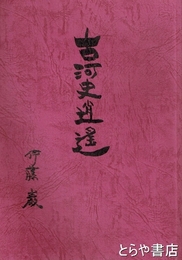 古河史逍遥
伊藤巌
とらや書店